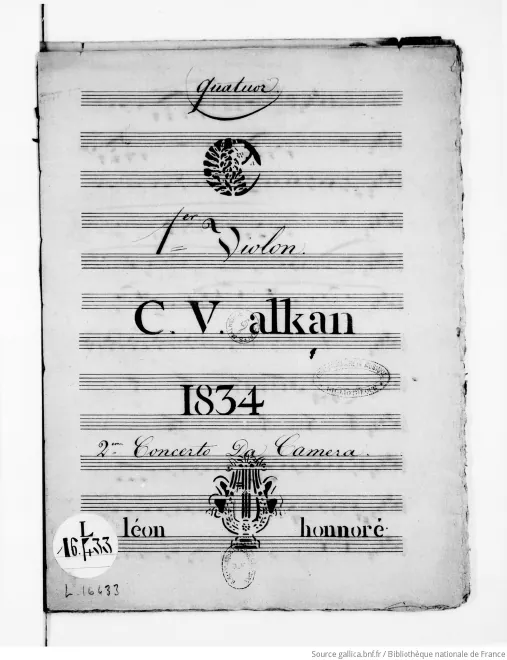 quatuor
1er Violon.
C. V. alkan
1834
2me Concerto Da Camera.
léon honnoré.
L
16.433
L. 16433
Source gallica.bnf.fr / Bibliothèque nationale de France